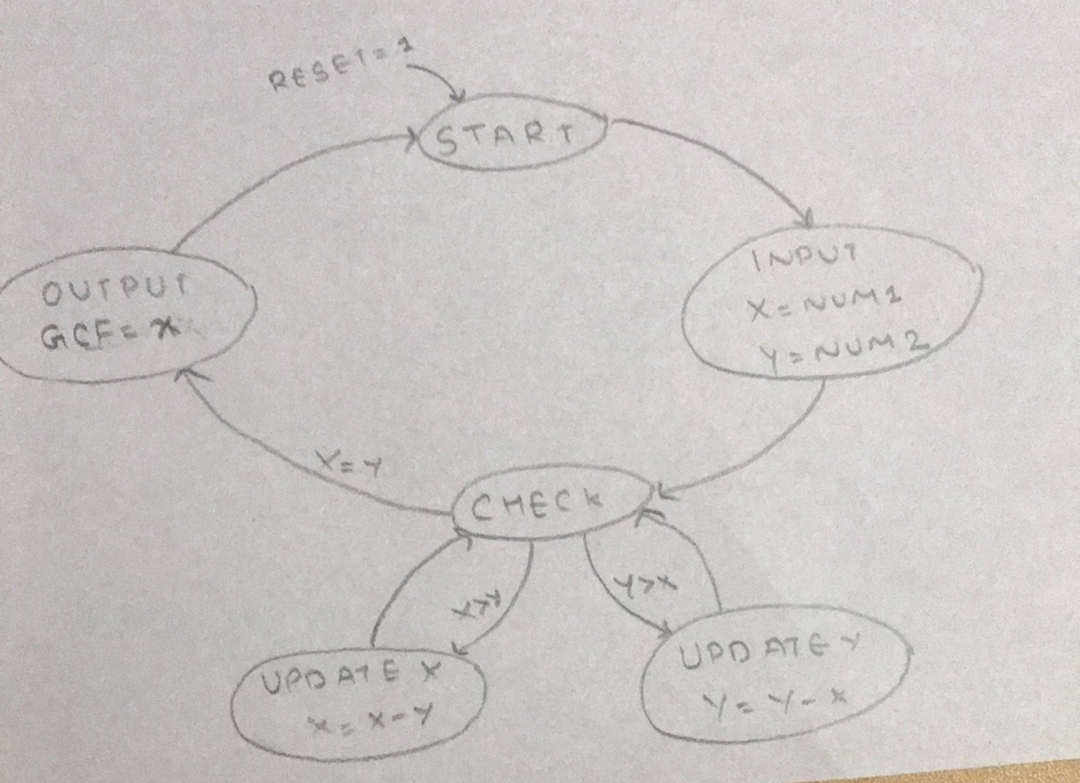 RESET = 1
START
INPUT
X = NUM1
Y = NUM2
OUTPUT
GCF = X
X = Y
CHECK
X>Y
Y>X
UPDATE X
X = X - Y
UPDATE Y
Y = Y - X